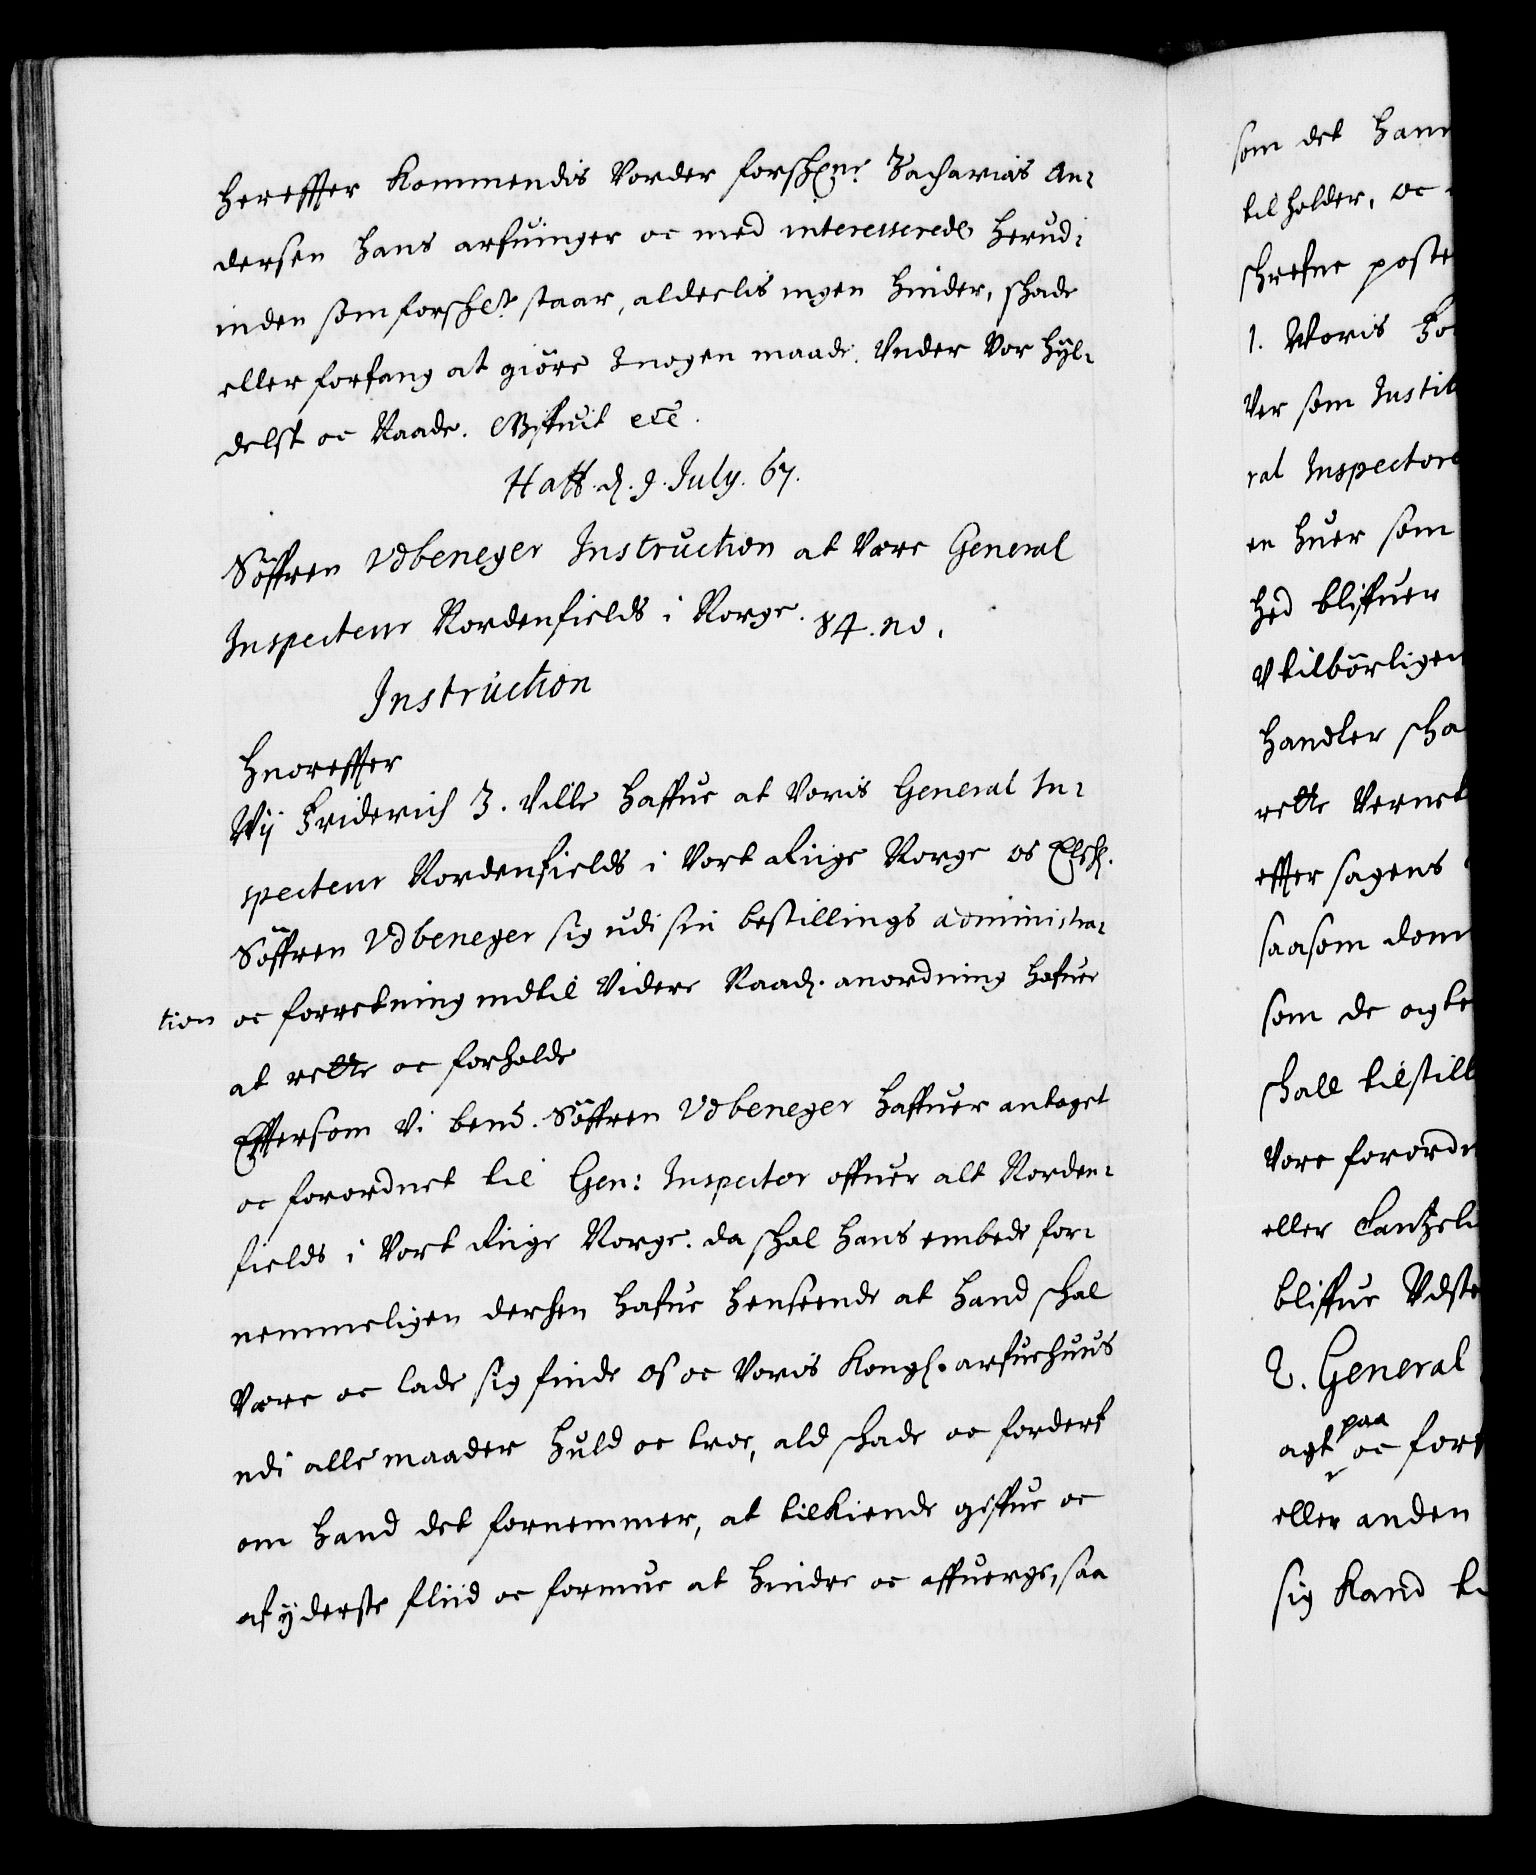 hereffter kommendis vorder forschne Zacharias An-
dersen hans arfuinger oc med interesserede herud-
inden som forschet staar, alderlis ingen hinder, schade
eller forfang at giöre I nogen maade. Under Vor hyl-
delst oc Naade. Giffuit etc.
Haff. d. 9. July. 67.
Söffren Vdbeneyer Instruction at være General
Inspecteur Nordenfields i Norge. 84. no.
Instruction
Huoreffter
Wij Friderich 3. Ville haffue at Voris General In-
specteur Nordenfields i Vort Riige Norge os Elsch.
Söffren Vdbeneyer sig udi sin bestillings administra-
tion oc forretning indtil Videre Naad. anordning hafuer
at rette oc forholde
Eftersom Vi bend. Söffren Vdbeneyer haffuer antaget
oc forordnet til Gen: Inspector offuer alt Norden-
fields i Vort Riige Norge. da schal hans embede for-
nemmeligen derhen hafue henseende at hand schal
Være oc lade sig finde os oc Voris Kongl. arfuehuus
udi alle maader huld oc troe, ald schade oc fordert
om hand det fornemmer, at tilkiende giffue oc
af yderste fliid oc formue at hindre oc affuerge, saa
som det ham
tilholder, oc
schrefne poste
1. Woris Fo
Ver som Instit
ral Inspectore
en huer som
hed bliffuer
Vtilbörligen
handler scha
rette Vernet
effter sagens
saasom dom
som de agte
schall tilstill
Vore forordn
eller Cantzeli
bliffue Vdste
2. General
agt paa oc for
eller anden
sig kand